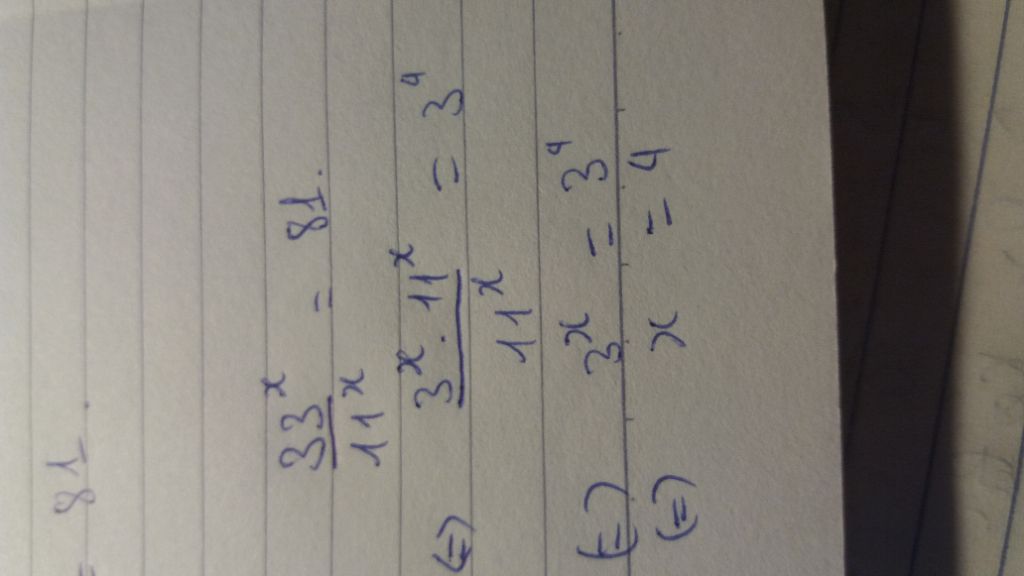 = 81.
33^x / 11^x = 81.
(=) 3^x · 11^x / 11^x = 3^4
(=) 3^x = 3^4
(=) x = 4